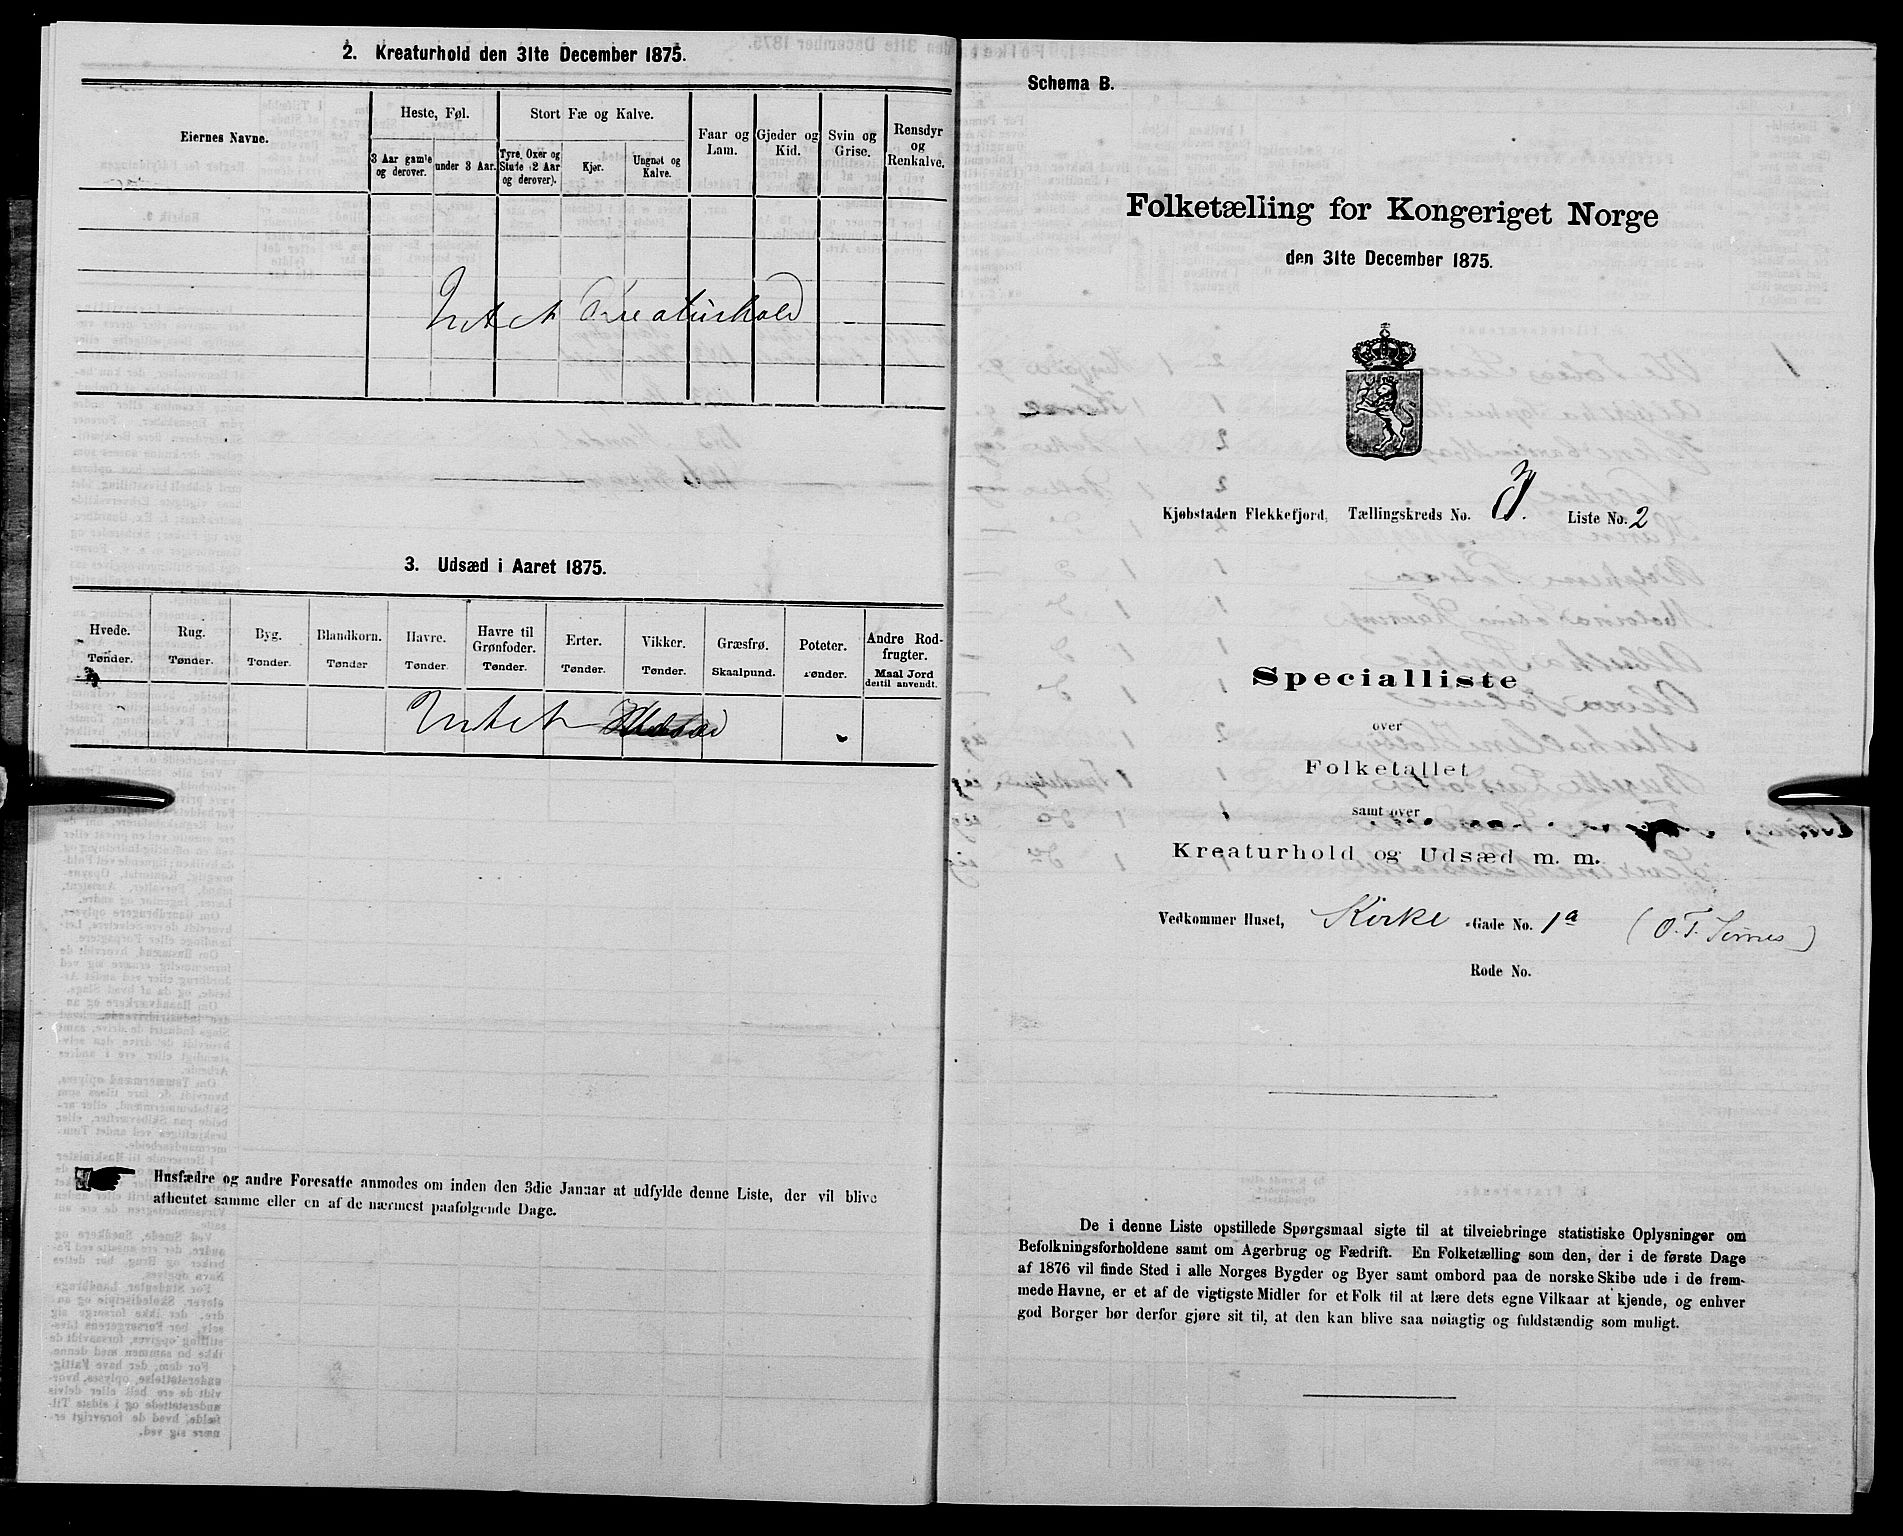 2. Kreaturhold den 31te December 1875.
Eiernes Navne.
Heste, Føl.
Stort Fæ og Kalve.
Faar og Lam.
Gjeder og Kid.
Svin og Grise.
Rensdyr og Renkalve.
3 Aar gamle og derover.
under 3 Aar.
Tyre, Oxer og Stude (2 Aar og derover).
Kjør.
Ungnøt og Kalve.
Intet Kreaturhold
3. Udsæd i Aaret 1875.
Hvede. Rug. Byg. Blandkorn. Havre. Havre til Grønfoder. Erter. Vikker. Græsfrø. Poteter. Andre Rodfrugter.
Tønder. Tønder. Tønder. Tønder Tønder. Tønder. Tønder. Tønder. Skaalpund. Tønder. Maal Jord dertil anvendt.
Intet Udsæd
Husfædre og andre Foresatte anmodes om inden den 3die Januar at udfylde denne Liste, der vil blive
afhentet samme eller en af de nærmest paafølgende Dage.
Schema B.
Folketælling for Kongeriget Norge
den 31te December 1875.
Kjøbstaden Flekkefjord, Tællingskreds No. 3. Liste No. 2
Specialliste
over
Folketallet
samt over
Kreaturhold og Udsæd m. m.
Vedkommer Huset, Kirke Gade No. 1a (O. T. Sirnes)
Rode No.
De i denne Liste opstillede Spørgsmaal sigte til at tilveiebringe statistiske Oplysninger om
Befolkningsforholdene samt om Agerbrug og Fædrift. En Folketælling som den, der i de første Dage
af 1876 vil finde Sted i alle Norges Bygder og Byer samt ombord paa de norske Skibe ude i de frem-
mede Havne, er et af de vigtigste Midler for et Folk til at lære dets egne Vilkaar at kjende, og enhver
god Borger bør derfor gjøre sit til, at den kan blive saa nøiagtig og fuldstændig som muligt.